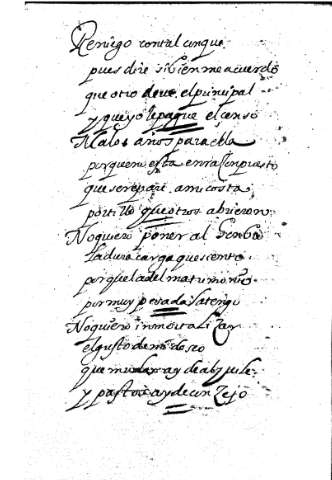 Reniego con tal cinque
pues dire si bien me acuerdo
que otro deve el principal
y que yo le pague el censo
Malos años para ella
porque no esta en razon puesto
que se repare a mi costa
portillo que otros abrieron
No quiero poner al
la dura carga que siento
porque la del matrimonio
por muy pesada la tengo
No quiero inmortalizar
el gusto de mi deseo
que mudar ay de
y pastor ay de conzejo